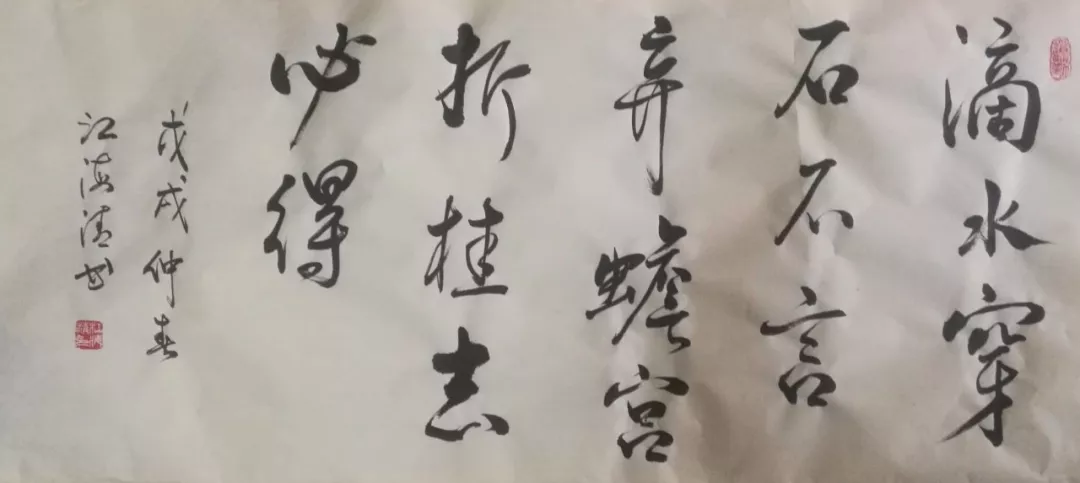 滴水穿
石不言
弃蟾宫
折桂志
必得
戊戌仲春
江海清书